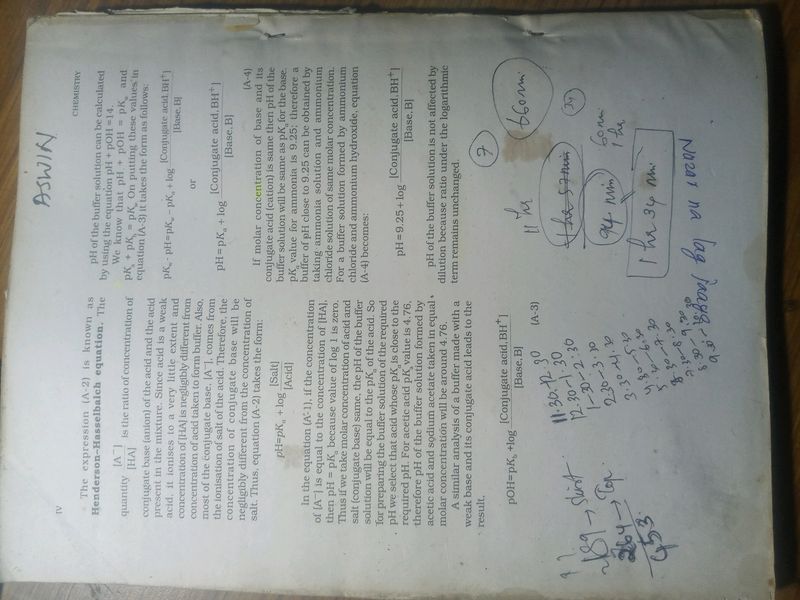 IV
The expression (A-2) is known as
Henderson–Hasselbalch equation. The
quantity [A⁻]/[HA] is the ratio of concentration of
conjugate base (anion) of the acid and the acid
present in the mixture. Since acid is a weak
acid, it ionises to a very little extent and
concentration of [HA] is negligibly different from
concentration of acid taken to form buffer. Also,
most of the conjugate base, [A⁻], comes from
the ionisation of salt of the acid. Therefore, the
concentration of conjugate base will be
negligibly different from the concentration of
salt. Thus, equation (A-2) takes the form:
pH=pKₐ + log [Salt]/[Acid]
In the equation (A-1), if the concentration
of [A⁻] is equal to the concentration of [HA],
then pH = pKₐ because value of log 1 is zero.
Thus if we take molar concentration of acid and
salt (conjugate base) same, the pH of the buffer
solution will be equal to the pKₐ of the acid. So
for preparing the buffer solution of the required
pH we select that acid whose pKₐ is close to the
required pH. For acetic acid pKₐ value is 4.76,
therefore pH of the buffer solution formed by
acetic acid and sodium acetate taken in equal
molar concentration will be around 4.76.
A similar analysis of a buffer made with a
weak base and its conjugate acid leads to the
result,
pOH=pK_b +log [Conjugate acid,BH⁺]/[Base,B] (A-3)
189 → Shirt
264 → Top
453
11.30-12.30
12.30-1.30
1.30-2.30
2.30-3.30
3.30-4.30
CHEMISTRY
ASWIN
pH of the buffer solution can be calculated
by using the equation pH + pOH =14.
We know that pH + pOH = pK_w and
pKₐ + pK_b = pK_w. On putting these values in
equation (A-3) it takes the form as follows:
pK_w - pH=pK_w − pKₐ +log [Conjugate acid,BH⁺]/[Base,B]
or
pH=pKₐ +log [Conjugate acid,BH⁺]/[Base,B] (A-4)
If molar concentration of base and its
conjugate acid (cation) is same then pH of the
buffer solution will be same as pKₐ for the base.
pKₐ value for ammonia is 9.25; therefore a
buffer of pH close to 9.25 can be obtained by
taking ammonia solution and ammonium
chloride solution of same molar concentration.
For a buffer solution formed by ammonium
chloride and ammonium hydroxide, equation
(A-4) becomes:
pH=9.25+log [Conjugate acid,BH⁺]/[Base,B]
pH of the buffer solution is not affected by
dilution because ratio under the logarithmic
term remains unchanged.
7
11 hr
660 min
1 hr 57 min
94 min
60 min
1 hr
34
1 hr 34 min
Nazar na lag jaaye